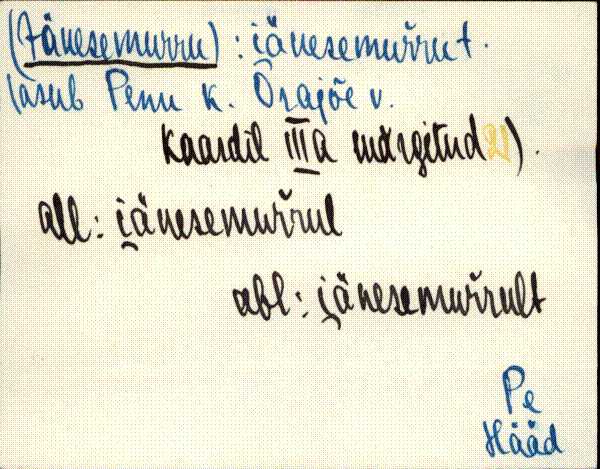 (Jänesemurru) : i̯änesemuřrut.
(asub Penu k. Õrajõe v.
kaardil IIIa märgitud 21).
all: i̯änesemuřrul
abl: i̯änesemuřrult
Pe
Hääd